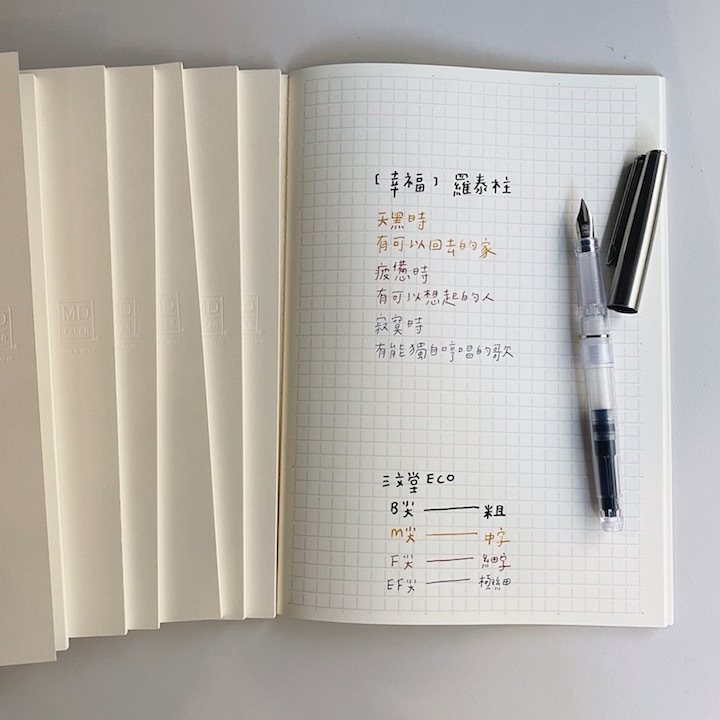 MD
MD
「幸福」羅泰柱
天黑時
有可以回去的家
疲憊時
有可以想起的人
寂寞時
有能獨自哼唱的歌
三文堂 ECO
B尖 — 粗
M尖 — 中字
F尖 — 細字
EF尖 — 極細